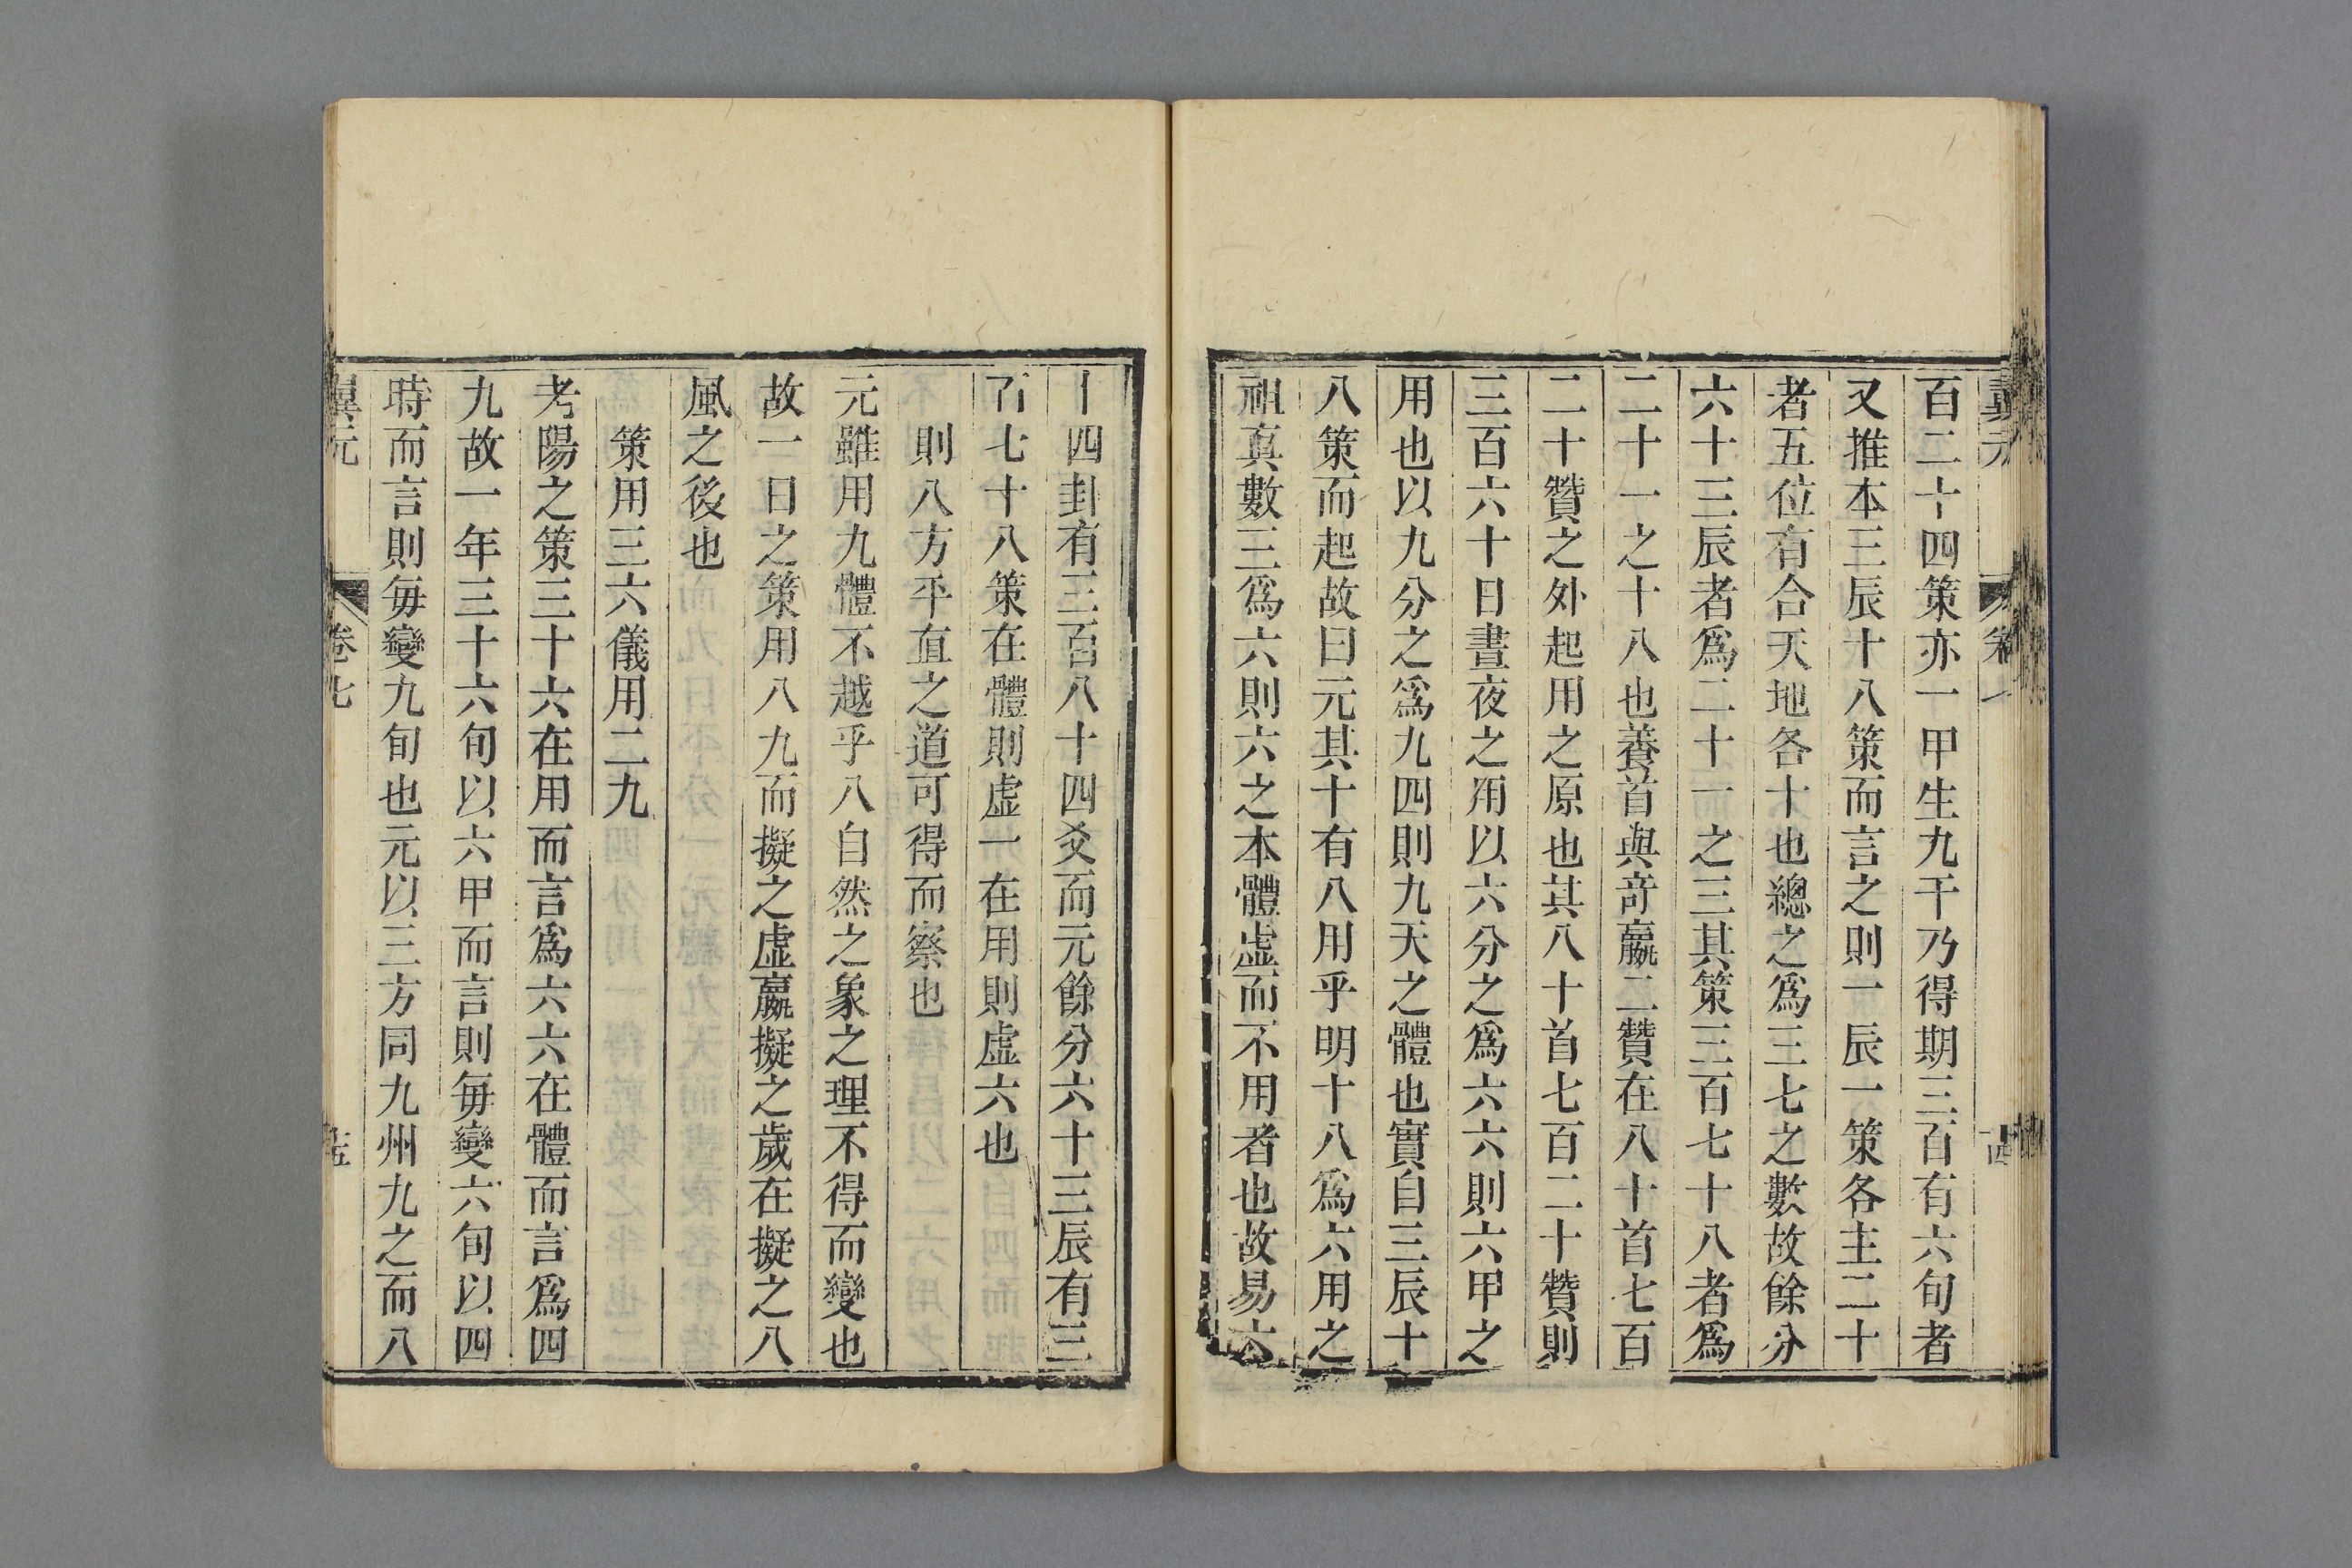 翼元 卷七 十四
百二十四策亦一甲生九干乃得期三百有六旬者
又推本三辰十八策而言之則一辰一策各主二十
者五位有合天地各十也總之爲三七之數故餘分
六十三辰者爲二十一之三其策三百七十八者爲
二十一之十八也養首與竒嬴二贊在八十首七百
二十贊之外起用之原也其八十首七百二十贊則
三百六十日晝夜之用以六分之爲六六則六甲之
用也以九分之爲九四則九天之體也實自三辰十
八策而起故曰元其十有八用乎明十八爲六用之
祖真數三爲六則六之本體虚而不用者也故易六
十四卦有三百八十四爻而元餘分六十三辰有三
百七十八策在體則虚一在用則虚六也
則八方平直之道可得而察也
元雖用九體不越乎八自然之象之理不得而變也
故一日之策用八九而擬之虚嬴擬之歲在擬之八
風之後也
策用三六儀用二九
考陽之策三十六在用而言爲六六在體而言爲四
九故一年三十六旬以六甲而言則每變六旬以四
時而言則每變九旬也元以三方同九州九之而八
翼元 卷七 十五